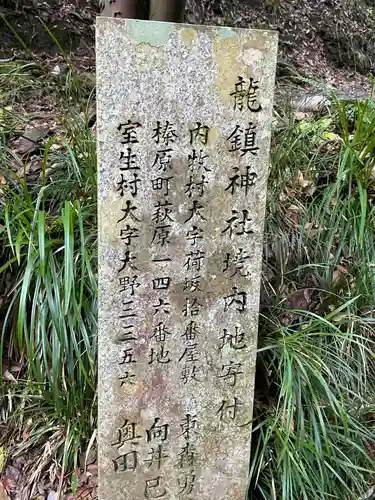 龍鎮神社境内地寄付
内牧村大字荷坂拾番屋敷 東森男
榛原町萩原一四六番地 向井巳
室生村大字大野二三五六 奥田